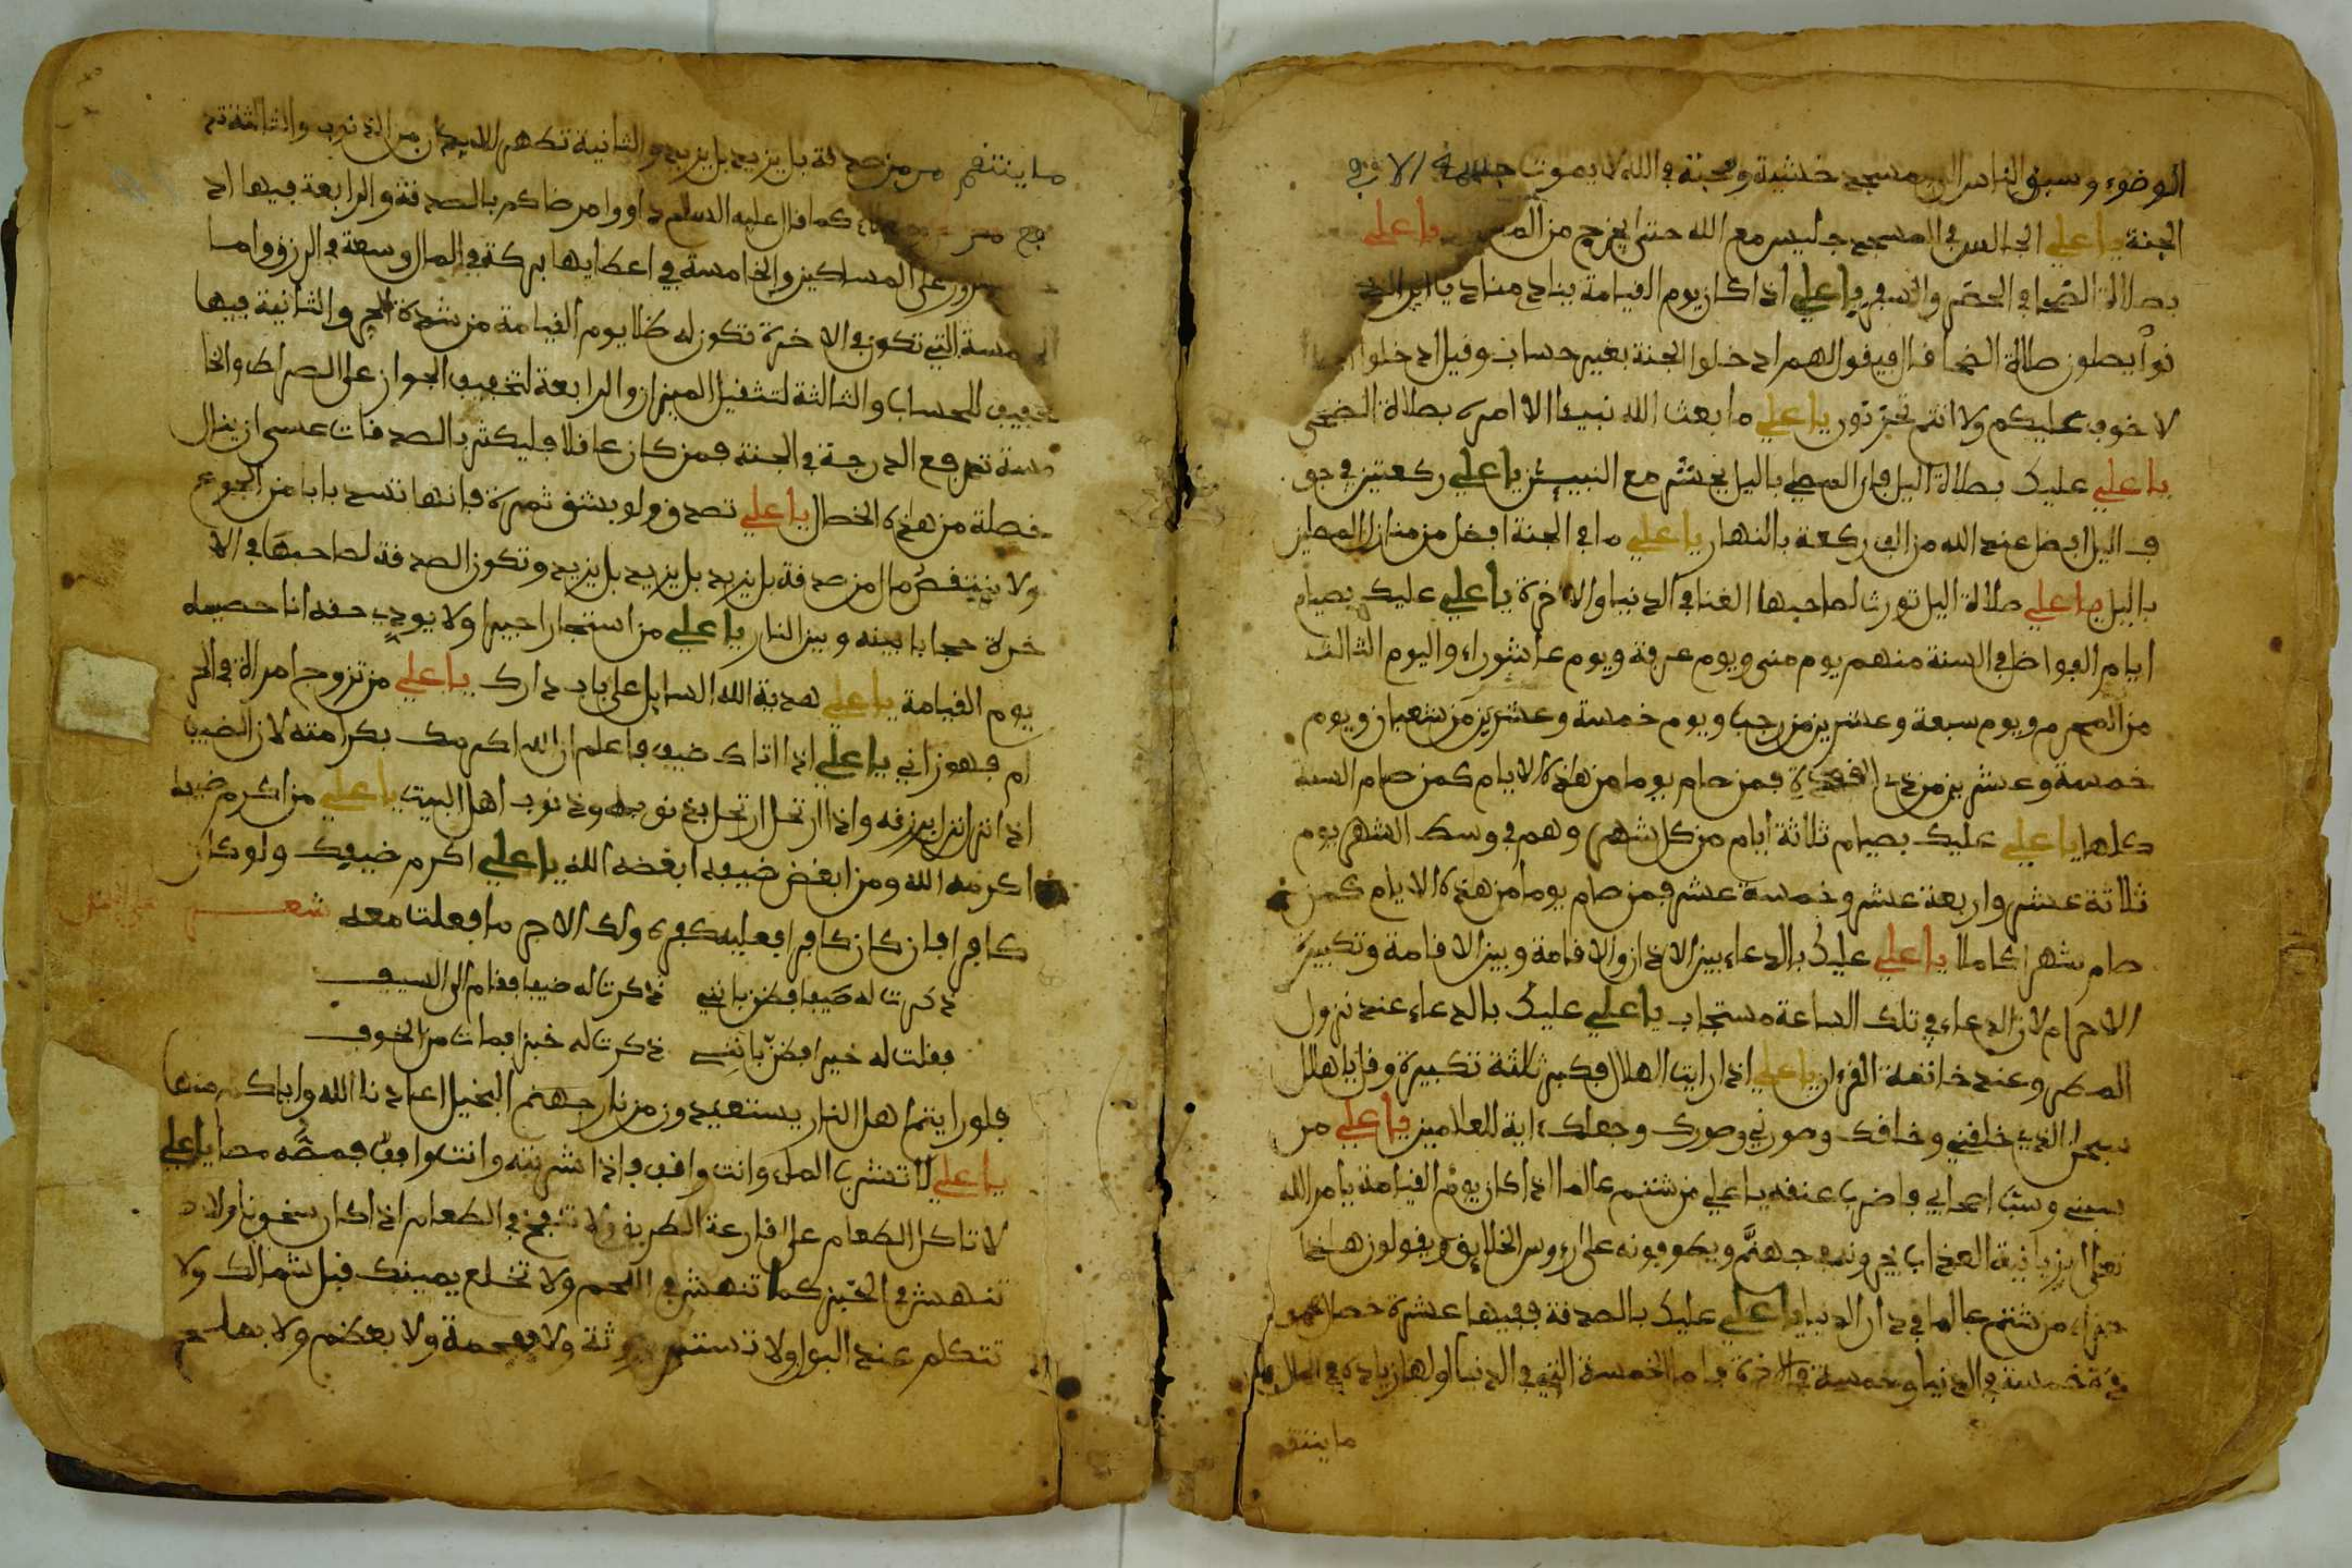 الوضوء وسبق الناس الى المسجد خشية ومحبة في الله لا يموت جسمه الا في
الجنة يا علي الجالس في المسجد جليس مع الله حتى يخرج من يا علي
بصلاة الضحا في الحضر والسفر يا علي اذا كان يوم القيامة ينادي مناد يا اين الذين
نوا يصلون صلاة الضحا قال فيقول لهم ادخلوا الجنة بغير حساب وقيل ادخلوا
لا خوف عليكم ولا انتم تحزنون يا علي ما بعث الله نبيئا الا امره بصلاة الضحى
يا علي عليك بصلاة اليل فان المصلي باليل يحشر مع النبيئن يا علي ركعتين في جو
ف اليل افضل عند الله من الف ركعة بالنهار يا علي ما في الجنة افضل من منازل المصلين
باليل يا علي صلاة اليل تورث لصاحبها الغنا في الدنيا والاخرة يا علي عليك بصيام
ايام الفواضل في السنة منهم يوم منى ويوم عرفة ويوم عاشوراء واليوم الثالث
من المحرم ويوم سبعة وعشرين من رجب ويوم خمسة وعشرين من شعبان ويوم
خمسة وعشرين من ذي القعدة فمن صام يوما من هاذه الايام كمن صام السنة
كلها يا علي عليك بصيام ثلاثة ايام من كل شهر وهم في وسط الشهر يوم
ثلاثة عشر واربعة عشر وخمسة عشر فمن صام يوما من هذه الايام كمن
صام شهرا كاملا يا علي عليك بالدعاء بين الاذان والاقامة وبين الاقامة وتكبيرة
الاحرام لان الدعاء في تلك الساعة مستجاب يا علي عليك بالدعاء عند نزول
المطر وعند خاتمة القرءان يا علي اذا رايت الهلال فكبر ثلثة تكبيرة وقل يا هلال
سبحن الذي خلقني وخلقك وصورني وصورك وجعلك ءاية للعالمين يا علي من
سبني وسب اصحابي فاضرب عنقه يا علي من شتم عالما اذا كان يوم القيامة يامر الله
تعلى الزبانية العذاب يجرونه جهنم ويطوفونه على رءوس الخلايق ويقولون هاذا
جزاء من شتم عالما في دار الدنيا يا علي عليك بالصدقة ففيها عشرة خصال
خمسة في الدنيا وخمسة في الاخرة فاما الخمسة التي في الدنيا اولها زيادة في المال
ما ينتقم
ما ينتقم من صدقة بل يزيد بل يزيد والثانية تطهر الابدان من الذنوب والثالثة تد
كما قال عليه السلم داووا مرضاكم بالصدقة والرابعة فيها اد
سرور على المساكين والخامسة في اعطايها بركة في المال وسعة في الرزق واما
الخمسة التي تكون في الاخرة تكون له ظلا يوم القيامة من شدة الحر والثانية فيها
تخفيف للحساب والثالثة لتثقيل الميزان والرابعة لتخفيف الجواز على الصراط والخا
مسة ترفع الدرجة في الجنة فمن كان عاقلا فليكثر بالصدقات عسى ان ينال
خصلة من هذه الخصال يا علي تصدق ولو بشق ثمرة فانها تسد بابا من الجوع
ولا ينتقص مال من صدقة بل يزيد بل يزيد بل يزيد وتكون الصدقة لصاحبها في الا
خرة حجابا بينه وبين النار يا علي من استجار اجيرا ولا يودي حقه انا خصيمه
يوم القيامة يا علي هدية الله السايل على باب دارك يا علي من تزوج امراة في الحر
ام فهو زاني يا علي اذا اتاك ضيف فاعلم ان الله اكرمك بكرامته لان الضيف
اذا نزل نزل برزقه واذا ارتحل ارتحل بذنوبك وذنوب اهل البيت يا علي من اكرم ضيفه
اكرمه الله ومن ابغض ضيفه ابغضه الله يا علي اكرم ضيفك ولو كان
كافرا فان كان كافرا فعليه كفره ولك الاجر ما فعلت معه شعر
ذكرت له ضيفا فظن بانني ذكرت له ضيفا فقام الى السيف
فقلت له خيرا فظن بانني ذكرت له خبزا فمات من الخوف
فلو رايتم اهل النار يستعيدون من نار جهنم البخيل اعاذنا الله واياكم منها
يا علي لا تشرب الماء وانت واقف فاذا شربته وانت واقف فمصه مصا يا علي
لا تاكل الطعام على قارعة الطريق ولا تنفخ في الطعام اذا كان سخونا ولا
تنهش في الخبز كما تنهش في اللحم ولا تخلع يمينك قبل شمالك ولا
تتكلم عند البول ولا تستنج بروثة ولا بفحمة ولا بعظم ولا